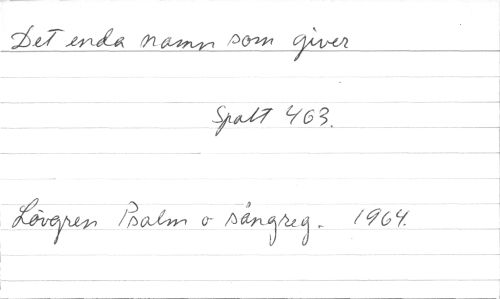 Det enda namn som giver
Spalt 463.
Lövgren Psalm o sångreg. 1964.